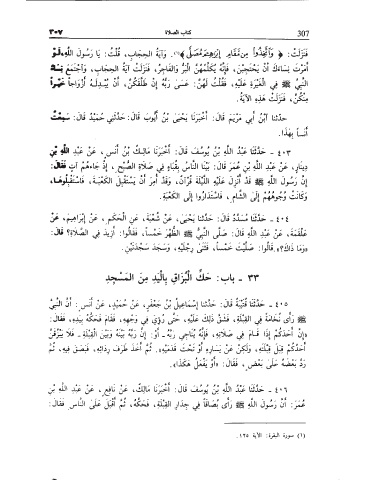 307 كتاب الصلاة ٣٠٧
فَنَزَلَتْ: ﴿ وَاتَّخِذُوا مِن مَّقَامِ إِبْرَاهِيمَ مُصَلًّى ﴾(١). وَآيَةُ الحِجَابِ، قُلْتُ: يَا رَسُولَ اللهِ، لَوْ
أَمَرْتَ نِسَاءَكَ أَنْ يَحْتَجِبْنَ، فَإِنَّهُ يُكَلِّمُهُنَّ البَرُّ وَالفَاجِرُ، فَنَزَلَتْ آيَةُ الحِجَابِ، وَاجْتَمَعَ نِسَاءُ
النَّبِيِّ ﷺ فِي الغَيْرَةِ عَلَيْهِ، فَقُلْتُ لَهُنَّ: عَسَى رَبُّهُ إِنْ طَلَّقَكُنَّ، أَنْ يُبْدِلَهُ أَزْوَاجاً خَيْراً
مِنْكُنَّ، فَنَزَلَتْ هَذِهِ الآيَةُ.
حدّثنا ابْنُ أَبِي مَرْيَمَ قَالَ: أَخْبَرَنَا يَحْيَى بْنُ أَيُّوبَ قَالَ: حَدَّثَنِي حُمَيْدٌ قَالَ: سَمِعْتُ
أَنَساً بِهَذَا.
٤٠٣ - حَدَّثَنَا عَبْدُ اللهِ بْنُ يُوسُفَ قَالَ: أَخْبَرَنَا مَالِكُ بْنُ أَنَسٍ، عَنْ عَبْدِ اللهِ بْنِ
دِينَارٍ، عَنْ عَبْدِ اللهِ بْنِ عُمَرَ قَالَ: بَيْنَا النَّاسُ بِقُبَاءٍ فِي صَلَاةِ الصُّبْحِ، إِذْ جَاءَهُمْ آتٍ فَقَالَ:
إِنَّ رَسُولَ اللهِ ﷺ قَدْ أُنْزِلَ عَلَيْهِ اللَّيْلَةَ قُرْآنٌ، وَقَدْ أُمِرَ أَنْ يَسْتَقْبِلَ الكَعْبَةَ، فَاسْتَقْبِلُوهَا،
وَكَانَتْ وُجُوهُهُمْ إِلَى الشَّأْمِ، فَاسْتَدَارُوا إِلَى الكَعْبَةِ.
٤٠٤ - حَدَّثَنَا مُسَدَّدٌ قَالَ: حَدَّثَنَا يَحْيَى، عَنْ شُعْبَةَ، عَنِ الحَكَمِ، عَنْ إِبْرَاهِيمَ، عَنْ
عَلْقَمَةَ، عَنْ عَبْدِ اللهِ قَالَ: صَلَّى النَّبِيُّ ﷺ الظُّهْرَ خَمْساً، فَقَالُوا: أَزِيدَ فِي الصَّلَاةِ؟ قَالَ:
«وَمَا ذَاكَ؟». قَالُوا: صَلَّيْتَ خَمْساً، فَثَنَى رِجْلَيْهِ، وَسَجَدَ سَجْدَتَيْنِ.
٣٣ - باب: حَكِّ البُزَاقِ بِالْيَدِ مِنَ المَسْجِدِ
٤٠٥ - حَدَّثَنَا قُتَيْبَةُ قَالَ: حَدَّثَنَا إِسْمَاعِيلُ بْنُ جَعْفَرٍ، عَنْ حُمَيْدٍ، عَنْ أَنَسٍ: أَنَّ النَّبِيَّ
ﷺ رَأَى نُخَامَةً فِي القِبْلَةِ، فَشَقَّ ذَلِكَ عَلَيْهِ، حَتَّى رُؤِيَ فِي وَجْهِهِ، فَقَامَ فَحَكَّهُ بِيَدِهِ، فَقَالَ:
«إِنَّ أَحَدَكُمْ إِذَا قَامَ فِي صَلَاتِهِ، فَإِنَّهُ يُنَاجِي رَبَّهُ - أَوْ: إِنَّ رَبَّهُ بَيْنَهُ وَبَيْنَ القِبْلَةِ - فَلَا يَبْزُقَنَّ
أَحَدُكُمْ قِبَلَ قِبْلَتِهِ، وَلَكِنْ عَنْ يَسَارِهِ أَوْ تَحْتَ قَدَمَيْهِ». ثُمَّ أَخَذَ طَرَفَ رِدَائِهِ، فَبَصَقَ فِيهِ، ثُمَّ
رَدَّ بَعْضَهُ عَلَى بَعْضٍ، فَقَالَ: «أَوْ يَفْعَلُ هَكَذَا».
٤٠٦ - حَدَّثَنَا عَبْدُ اللهِ بْنُ يُوسُفَ قَالَ: أَخْبَرَنَا مَالِكٌ، عَنْ نَافِعٍ، عَنْ عَبْدِ اللهِ بْنِ
عُمَرَ: أَنَّ رَسُولَ اللهِ ﷺ رَأَى بُصَاقاً فِي جِدَارِ القِبْلَةِ، فَحَكَّهُ، ثُمَّ أَقْبَلَ عَلَى النَّاسِ فَقَالَ:
(١) سورة البقرة: الآية ١٢٥.